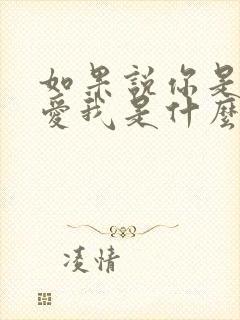 如果説你是
愛我是什麼
凌情